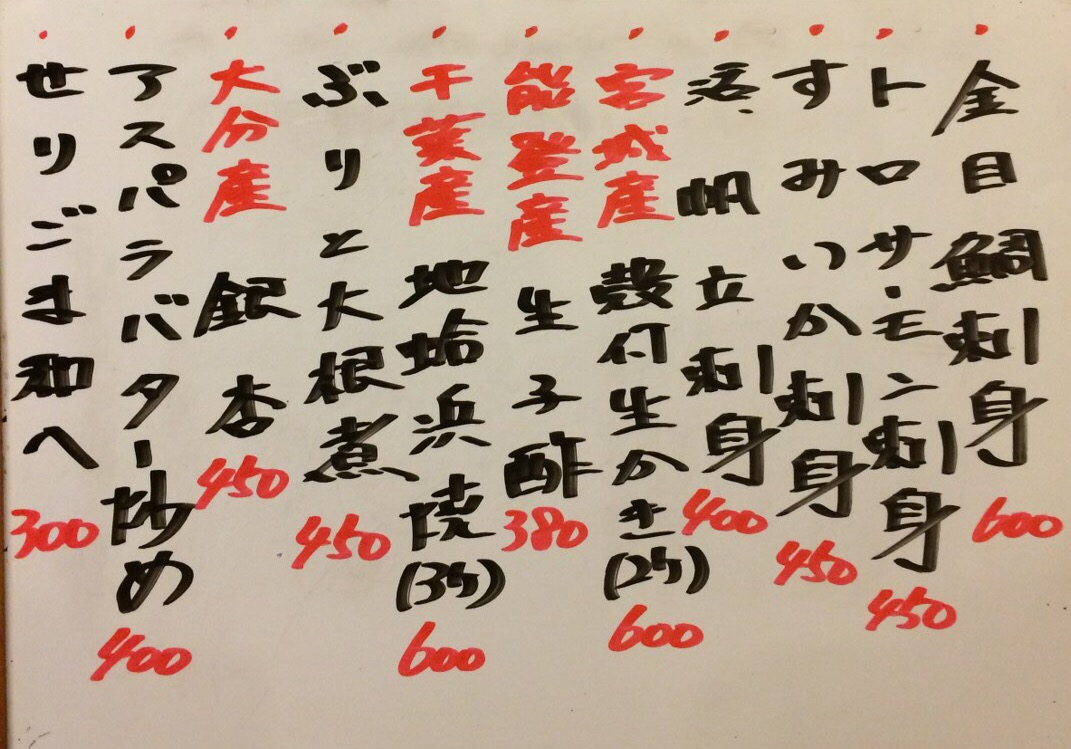 金目鯛刺身 600
トロサーモン刺身 450
すみいか刺身 450
活帆立刺身 400
宮城産 殻付生かき(2ケ) 600
能登産 生子酢 380
千葉産 地蛤浜焼(3ケ) 600
ぶりと大根煮 450
大分産 銀杏 450
アスパラバター炒め 400
せりごま和へ 300